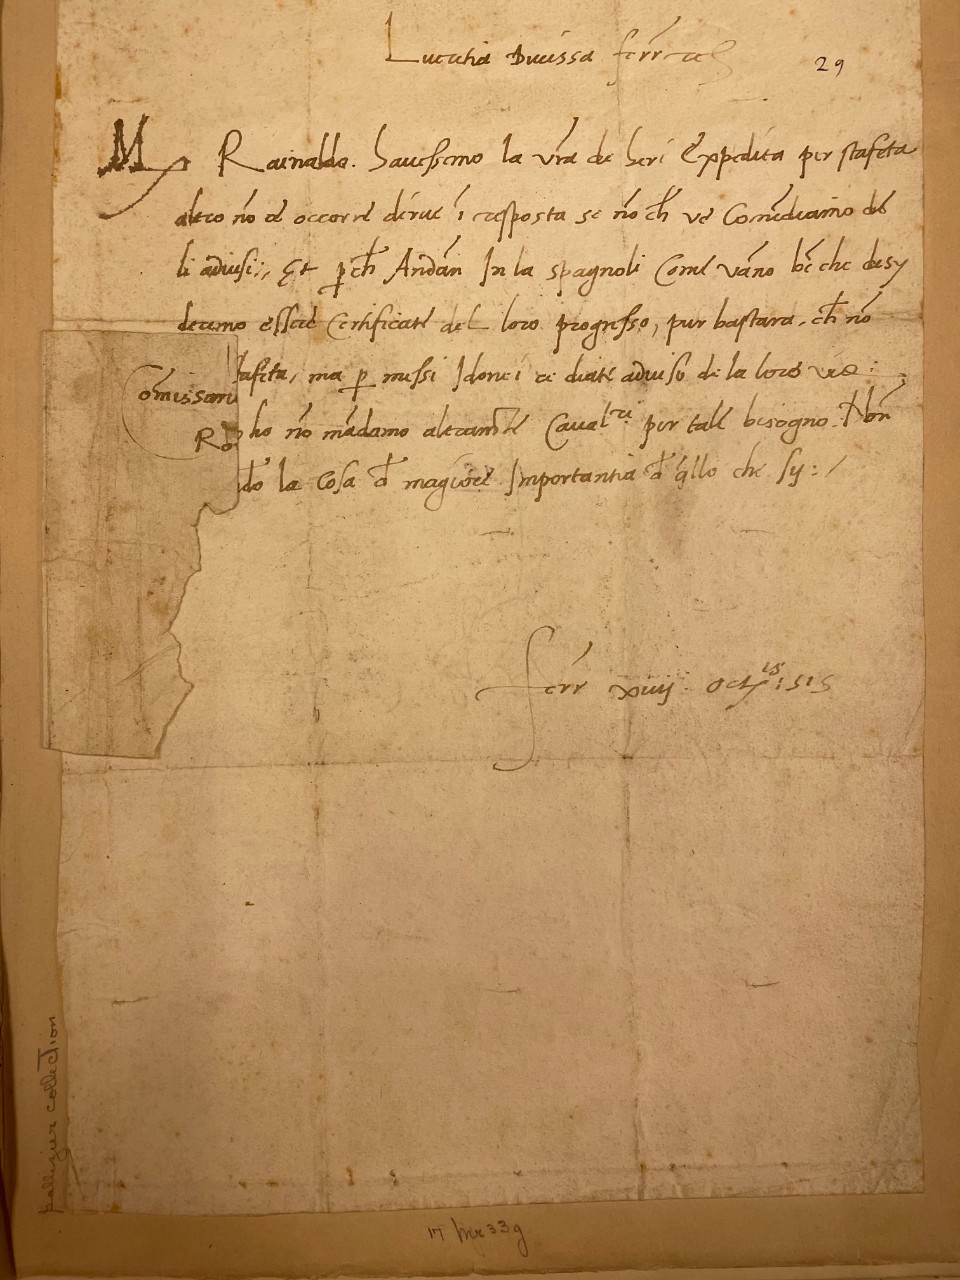 Lucretia Ducissa ferrarie
29
M Rainaldo. Hauessemo la vra de heri expedita per stafeta
altro nõ ce occorre dirue ĩ resposta se nõ ch ve Comẽdiamo de
li aduisi; Et p ch Andãn In la spagnoli Come vãno bẽ che desy
deramo essere Certificate del loro progresso, pur bastara, ch nõ
stafeta, ma p messi Idonei ce diate aduiso de la loro via:
Comissario
Ro ho nõ mãdamo altramte Caualri per tale bisogno. Non
do la Cosa d magiore Importantia d qllo che sy:/
ferr xiiij octris 1515
17 Apr 33 g
collection